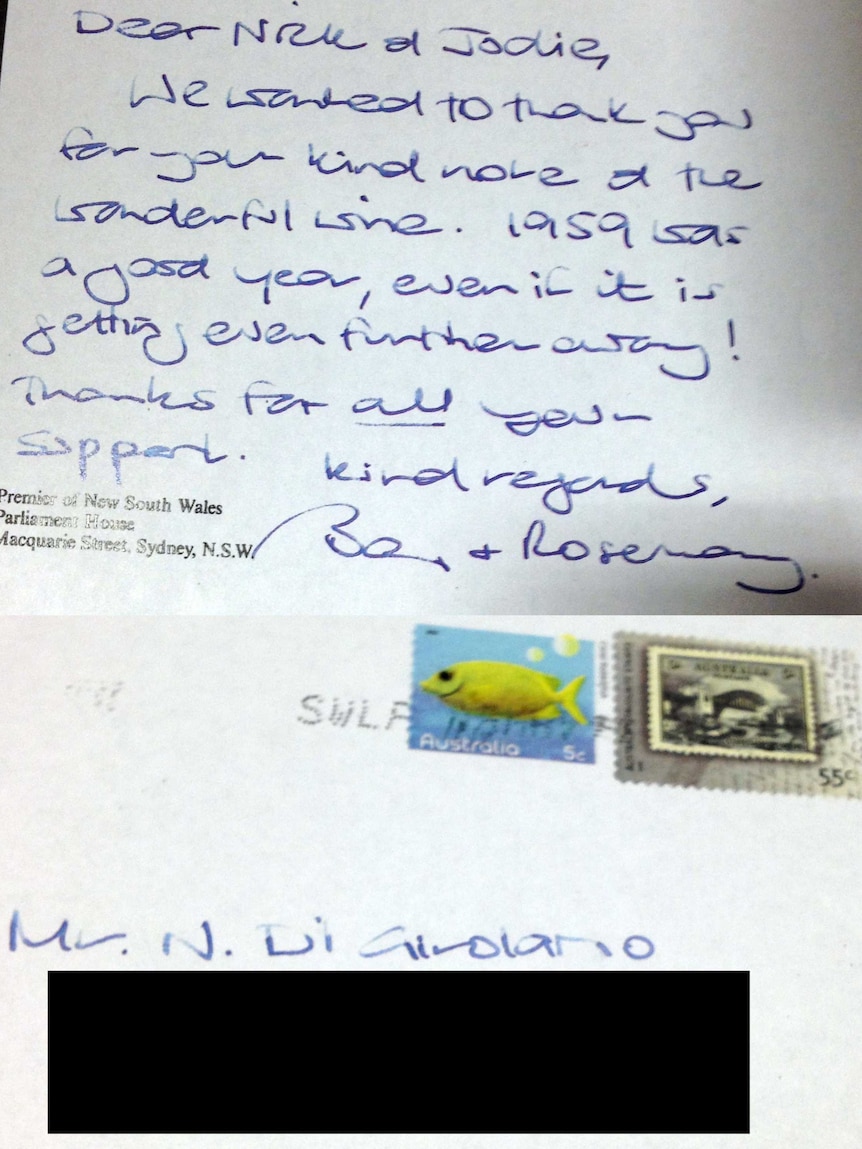 Dear Nick & Jodie,
We wanted to thank you
for your kind note & the
wonderful wine. 1959 was
a good year, even if it is
getting even further away!
Thanks for all your
support.
kind regards,
Premier of New South Wales
Parliament House
Macquarie Street, Sydney, N.S.W.
Barry + Rosemary.
SWLF
Australia 5c
AUSTRALIA
55c
Mr. N. Di Girolamo